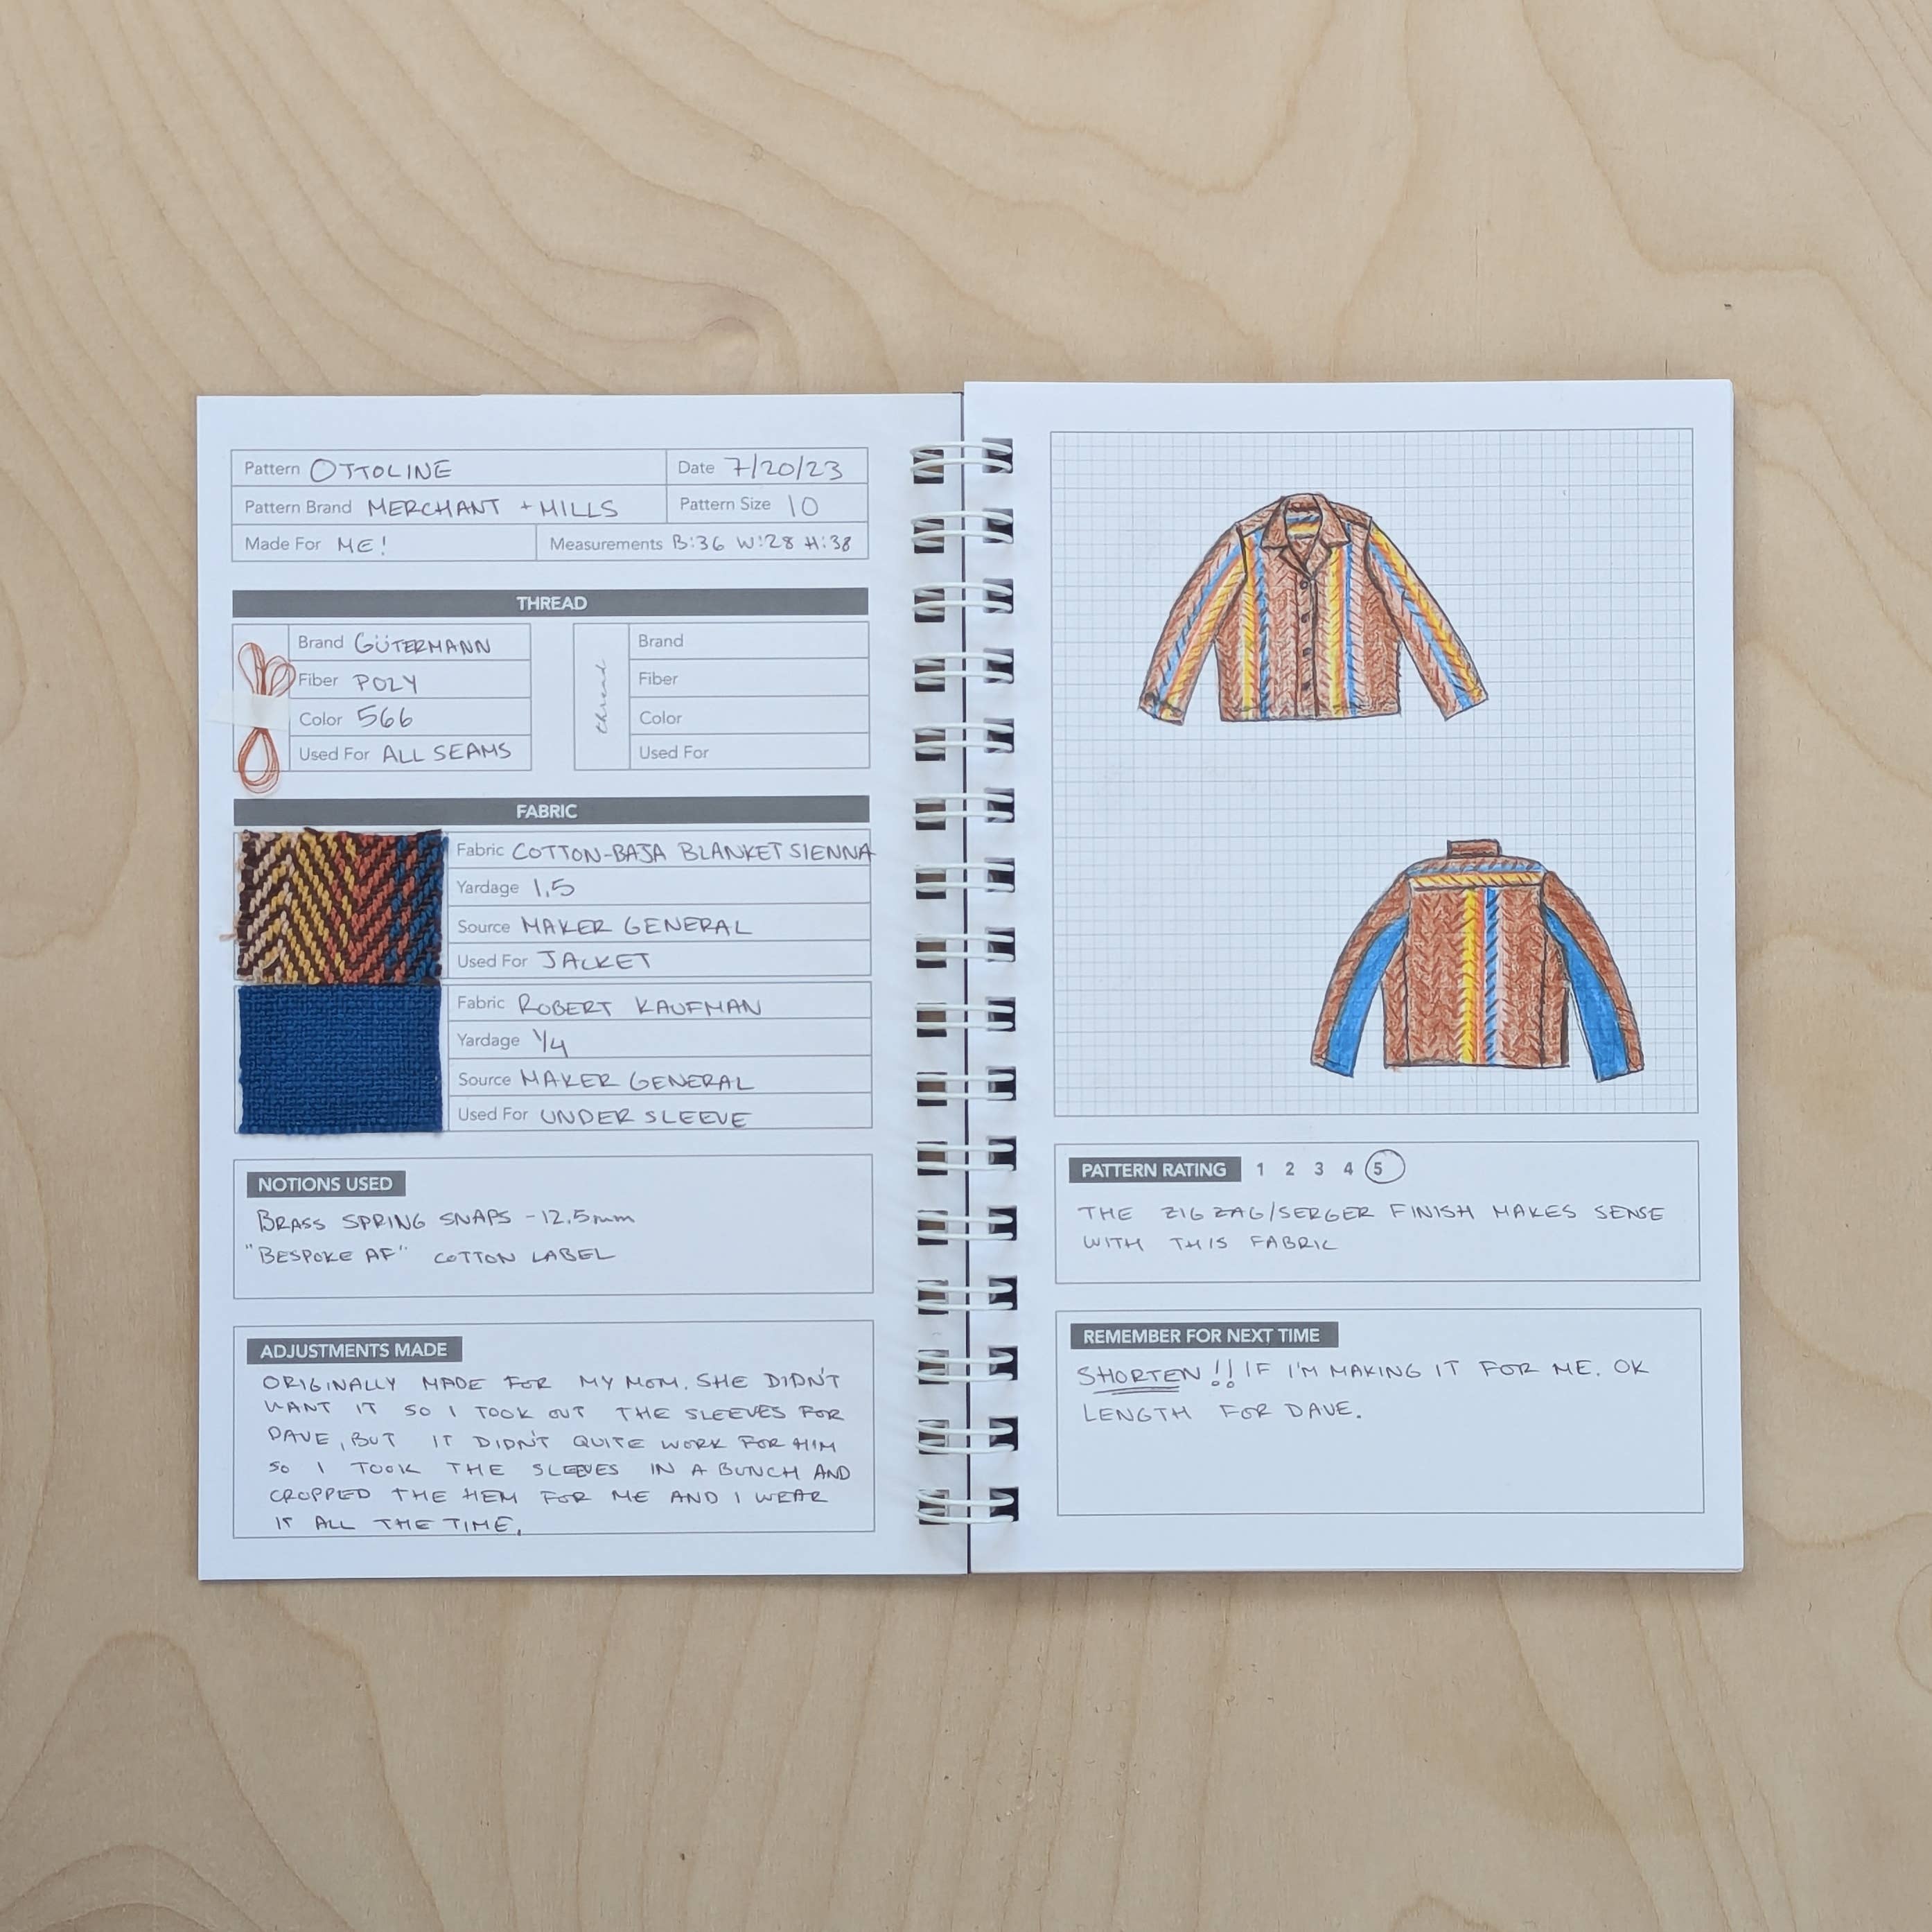 Pattern OTTOLINE Date 7/20/23
Pattern Brand MERCHANT + MILLS Pattern Size 10
Made For ME! Measurements B:36 W:28 H:38
THREAD
Brand GÜTERMANN
Fiber POLY
Color 566
Used For ALL SEAMS
thread
Brand
Fiber
Color
Used For
FABRIC
Fabric COTTON-BAJA BLANKET SIENNA
Yardage 1.5
Source MAKER GENERAL
Used For JACKET
Fabric ROBERT KAUFMAN
Yardage 1/4
Source MAKER GENERAL
Used For UNDER SLEEVE
NOTIONS USED
BRASS SPRING SNAPS - 12.5mm
"BESPOKE AF" COTTON LABEL
ADJUSTMENTS MADE
ORIGINALLY MADE FOR MY MOM. SHE DIDN'T
WANT IT SO I TOOK OUT THE SLEEVES FOR
DAVE, BUT IT DIDN'T QUITE WORK FOR HIM
SO I TOOK THE SLEEVES IN A BUNCH AND
CROPPED THE HEM FOR ME AND I WEAR
IT ALL THE TIME.
PATTERN RATING 1 2 3 4 5
THE ZIG ZAG/SERGER FINISH MAKES SENSE
WITH THIS FABRIC
REMEMBER FOR NEXT TIME
SHORTEN!! IF I'M MAKING IT FOR ME. OK
LENGTH FOR DAVE.